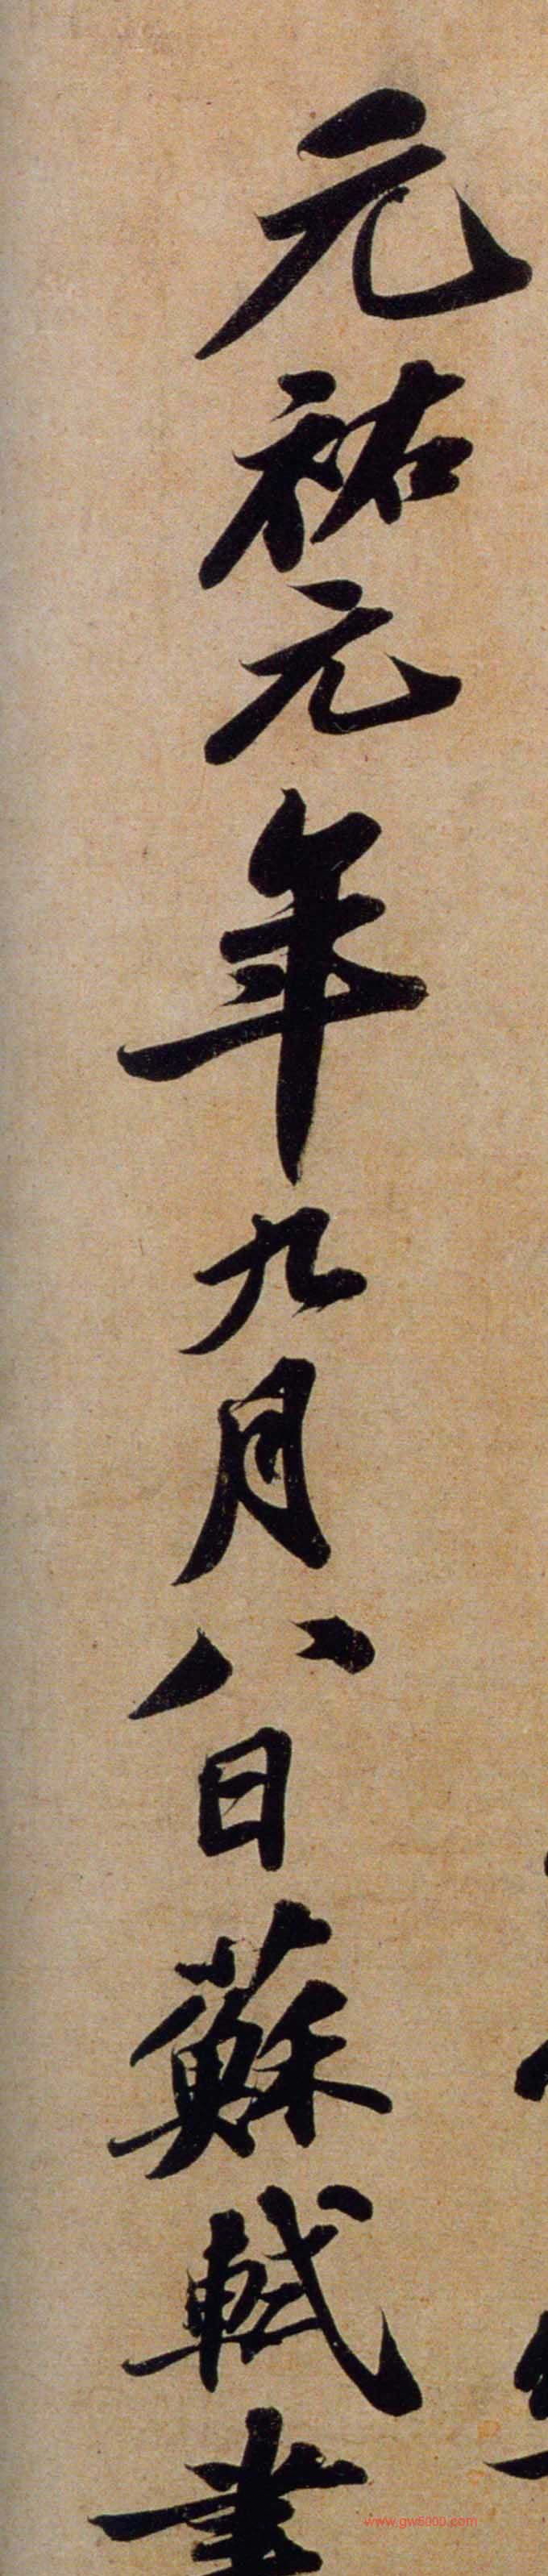 元祐元年九月八日蘇軾書
www.gw5000.com